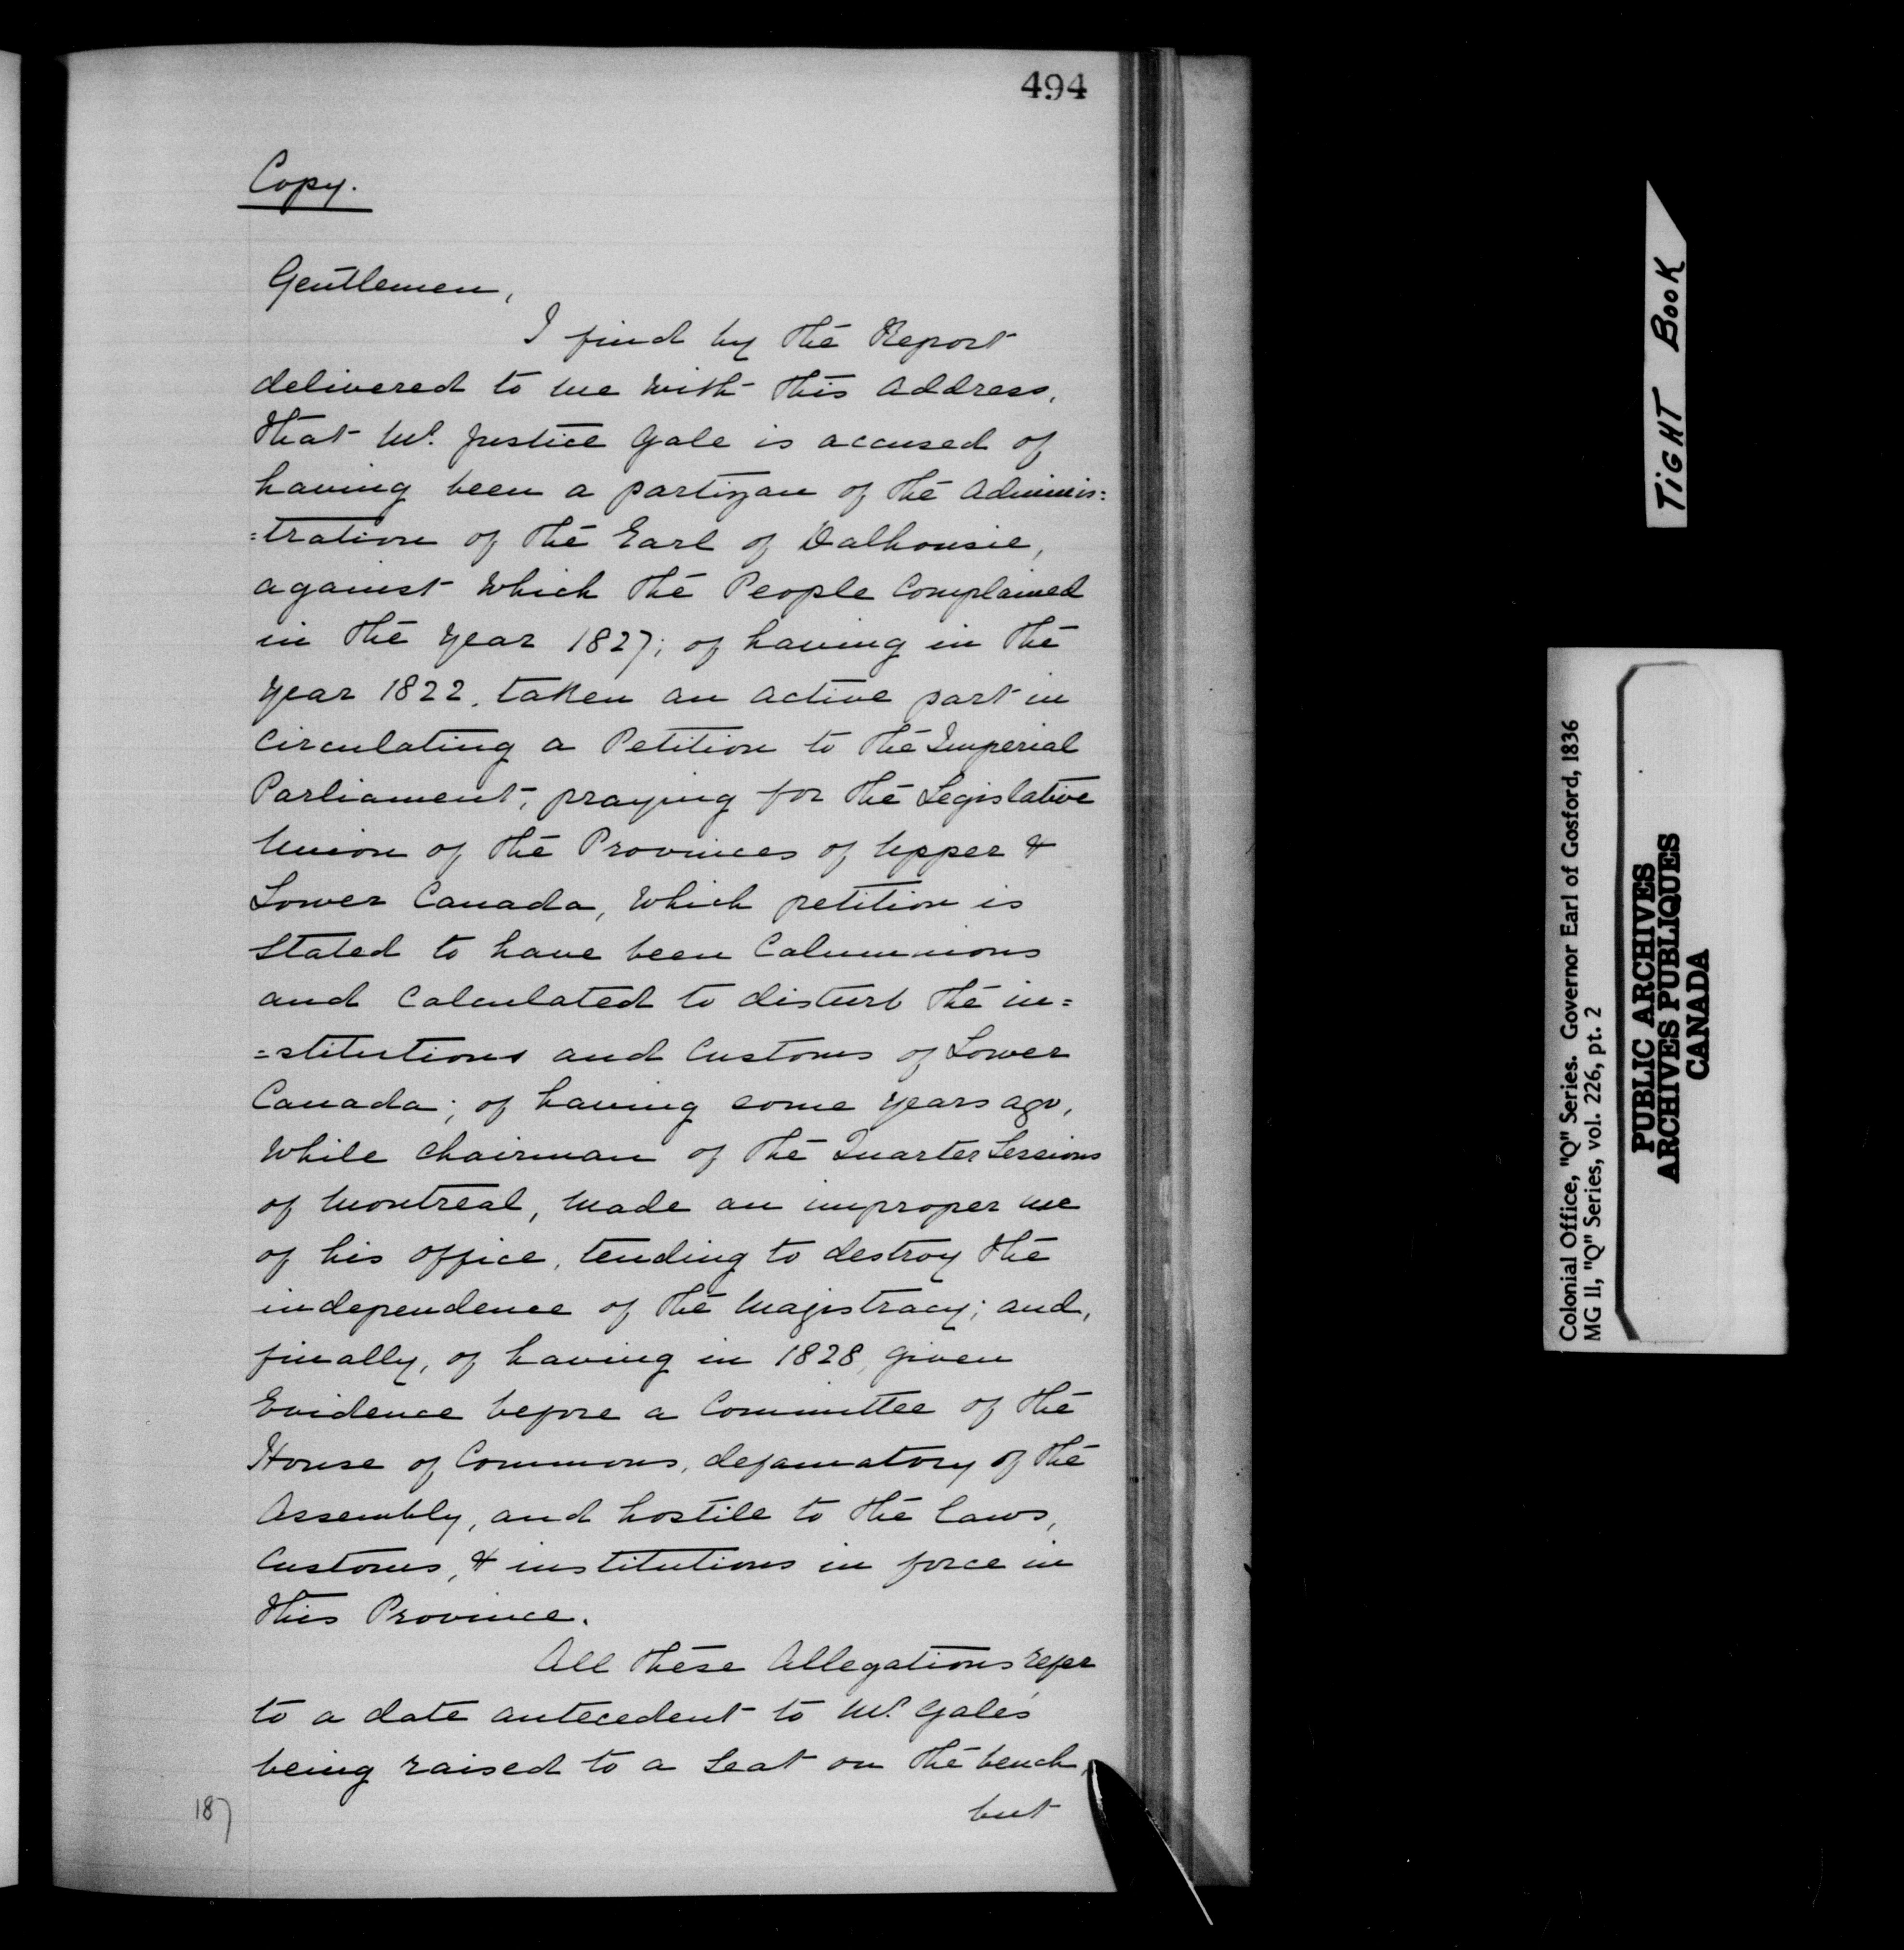 494
Copy.
Gentlemen,
I find by the Report
delivered to me with this address,
that Mr. Justice Gale is accused of
having been a partizan of the Adminis=
=tration of the Earl of Dalhousie,
against which the People Complained
in the Year 1827; of having in the
Year 1822, taken an active part in
Circulating a Petition to the Imperial
Parliament, praying for the Legislative
Union of the Provinces of Upper &
Lower Canada, which petition is
Stated to have been Calumnious
and Calculated to disturb the in=
=stitutions and Customs of Lower
Canada; of having some years ago,
While Chairman of the Quarter Sessions
of Montreal, made an improper use
of his office, tending to destroy the
independence of the Magistracy; and,
finally, of having in 1828, given
Evidence before a Committee of the
House of Commons, defamatory of the
Assembly, and hostile to the laws,
Customs, & institutions in force in
this Province.
All these Allegations refer
to a date antecedent to Mr. Gale's
being raised to a Seat on the bench,
but
187
TIGHT BOOK
Colonial Office, "Q" Series. Governor Earl of Gosford, 1836
MG 11, "Q" Series, vol. 226, pt. 2
PUBLIC ARCHIVES
ARCHIVES PUBLIQUES
CANADA